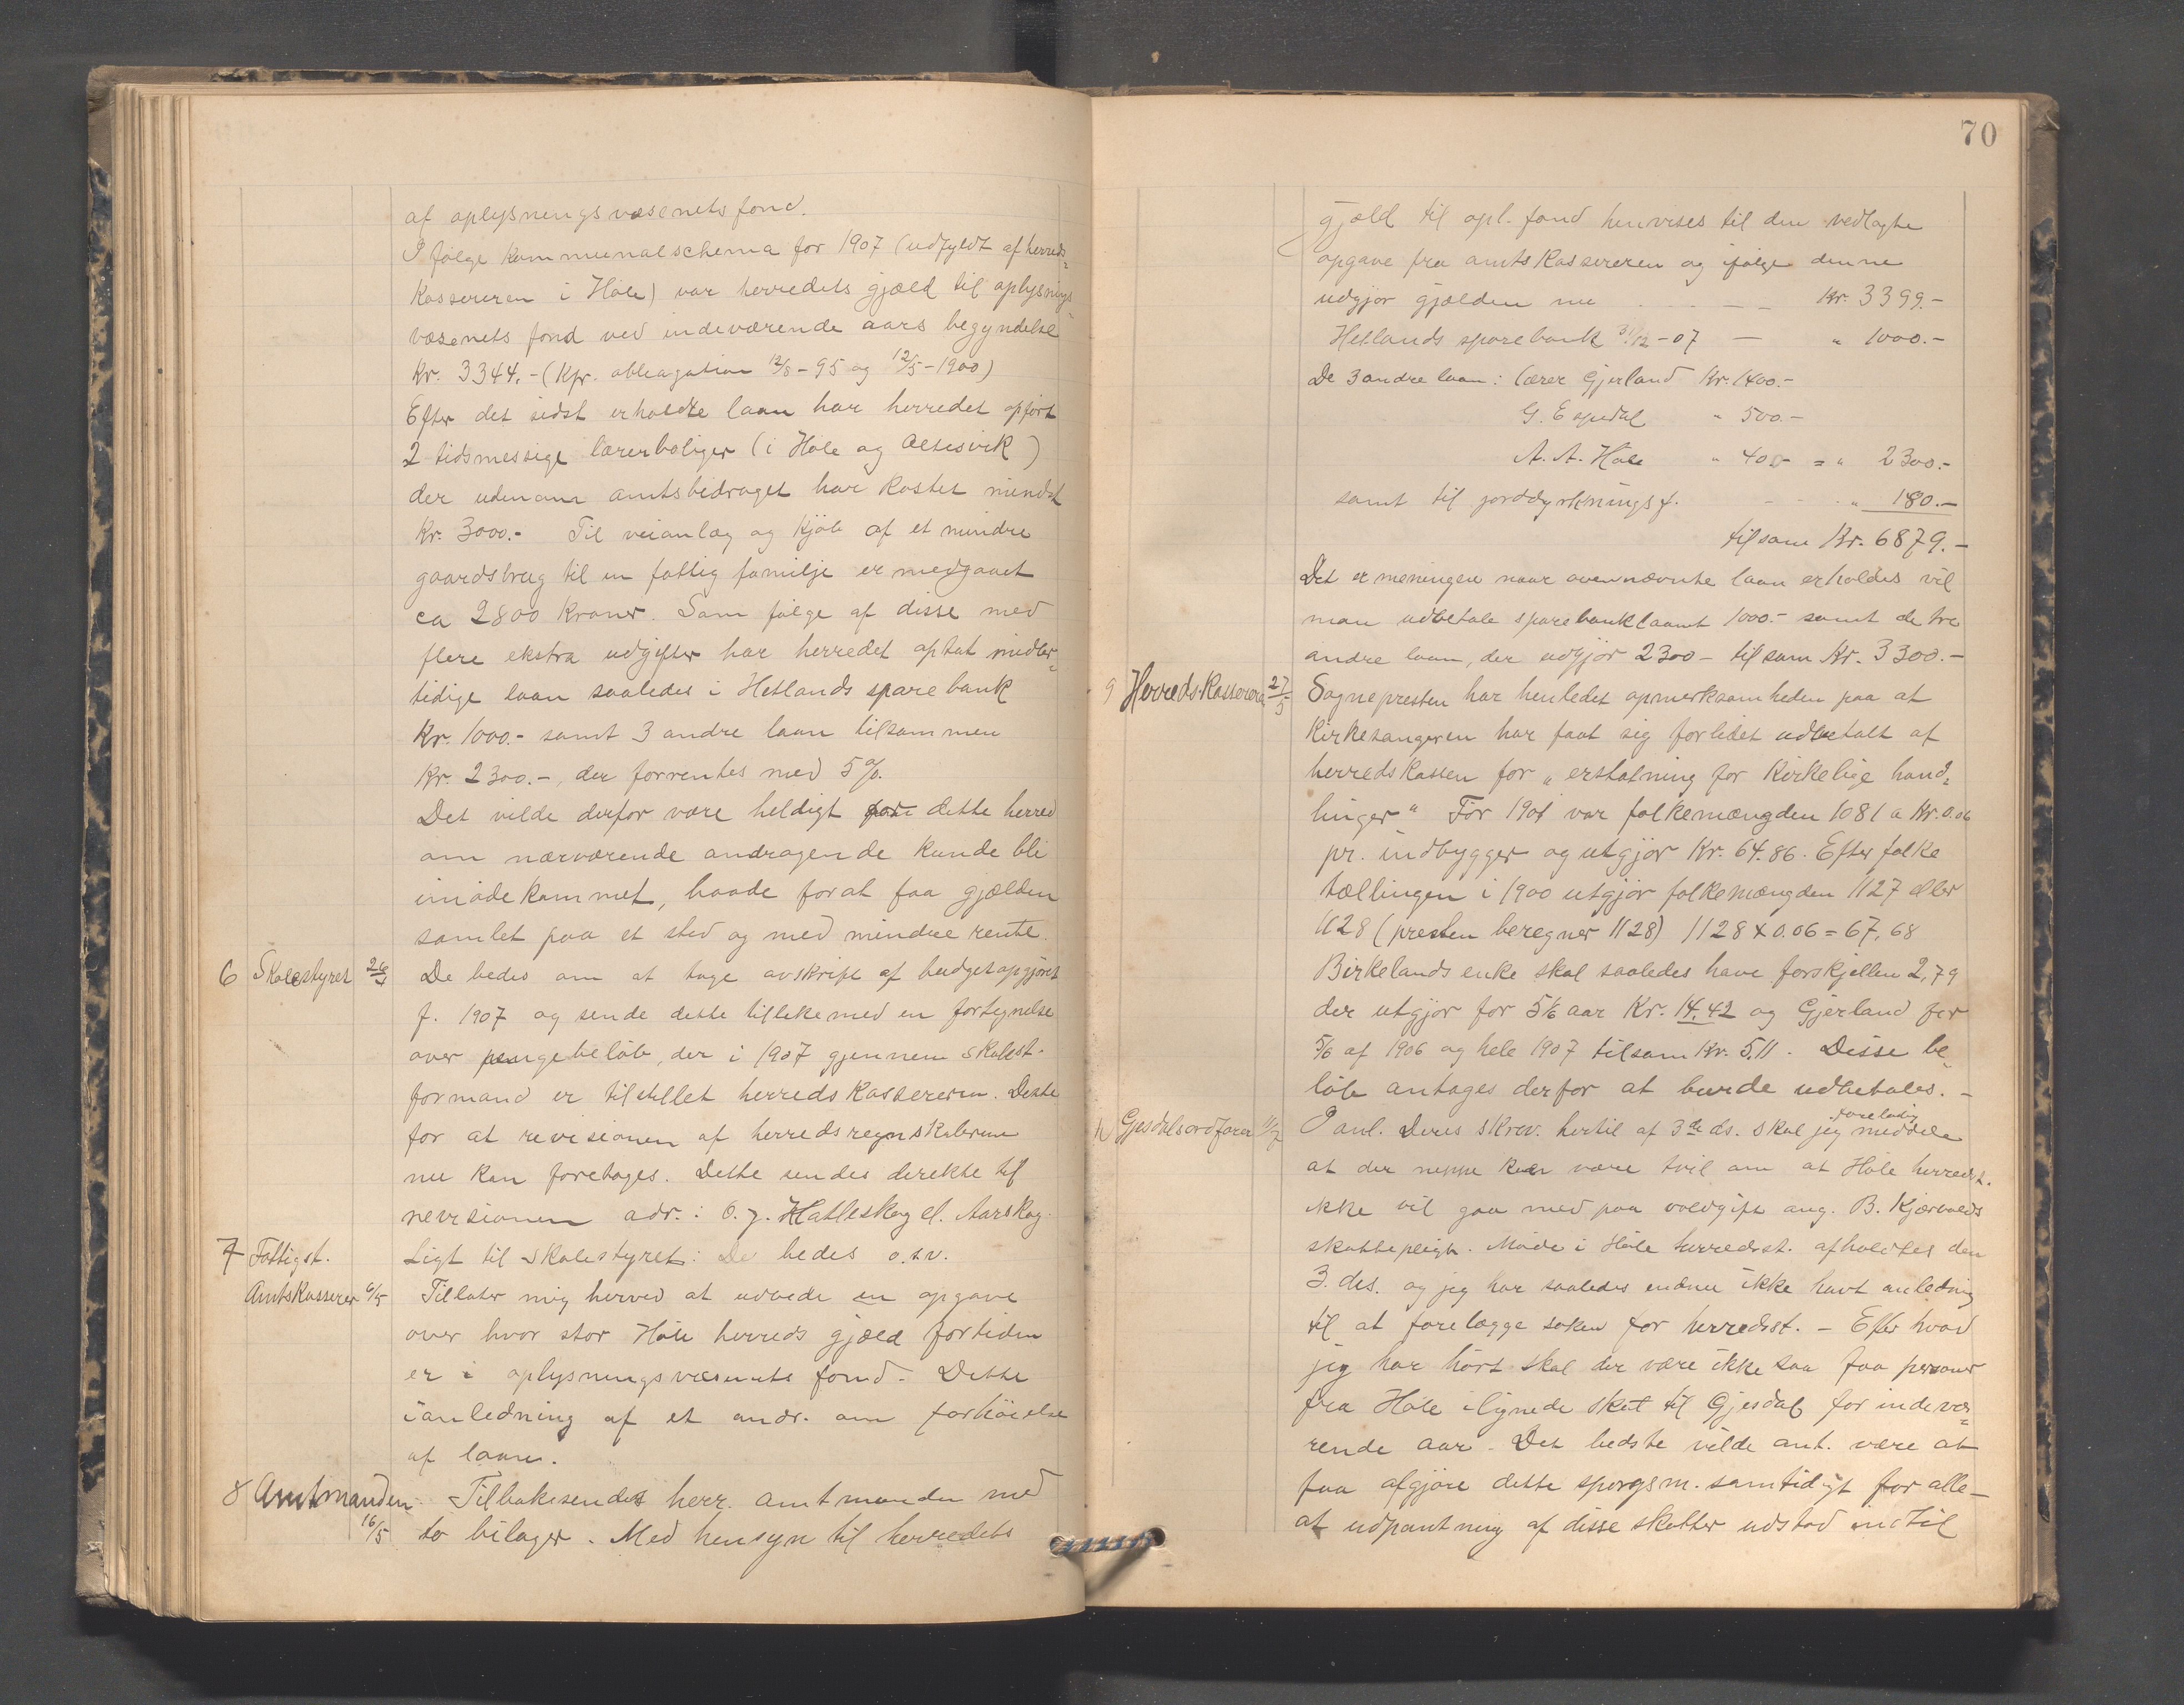 af oplysningsvæsenets fond.
I følge Kommunalschema for 1907 (udfyldt af herreds=
kassereren i Høle) var herredets gjæld til oplysnings
væsenets fond ved indeværende aars begyndelse
Kr. 3344.- (Kfr. obligation 12/8-95 og 12/5-1900)
Efter det sidst erholdte laan har herredet opført
2 tidsmessige lærerboliger (i Høle og Oltesvik)
der udenom amtsbidraget har kostet mindst
Kr. 3000.- Til veianlæg og kjøb af et mindre
gaardsbrug til en fattig familje er medgaaet
ca 2800 Kroner. Som følge af disse med
flere ekstra udgifter har herredet optat midler=
tidige laan saaledes i Hetlands sparebank
Kr. 1000.- samt 3 andre laan tilsammen
Kr. 2300.-, der forrentes med 5%.
Det vilde derfor være heldigt for dette herred
om nærværende andragende kunde bli
imødekommet, baade forat faa gjælden
samlet paa et sted og med mindre rente.
6 Skolestyret De bedes om at tage avskrift af budgetopgjøret
f. 1907 og sende dette tillikemed en fortegnelse
over pengebeløb, der i 1907 gjennem skolest.
formand er tilstillet herredskassereren. Dette
for at revisionen af herredsregnskaberne
nu kan foretages. Dette sendes direkte til
revisionen adr.: O. J. Hatleskog el. Aarskog.
7 Fattigst. Ligt til skolestyret: De bedes o.s.v.
Amtskasserer 6/5 Tillater mig herved at udbede en opgave
over hvor stor Høle herreds gjæld fortiden
er i oplysningsvæsenets fond. Dette
i anledning af et andr. om forhöielse
af laan.
8 Amtmanden Tilbakesendes herr. amtmanden med
16/5 to bilager. Med hensyn til herredets
70
gjæld til opl. fond henvises til den vedlagte
opgave fra amtskassereren og ifølge denne
udgjør gjælden nu - Kr. 3399.-
Hetlands sparebank 31/12-07 - " 1000.-
De 3 andre laan: lærer Gjerland Kr. 1400.-
G. Espedal " 500.-
A. A. Høle " 400- = " 2300.-
samt til jorddyrkningsf. " 180.-
tilsam Kr. 6879.-
Det er meningen naar ovennævnte laan erholdes vil
man udbetale sparebanklaanet 1000.- samt de tre
andre laan, der udgjør 2300- tilsam Kr. 3300.-
9 Herredskassereren 27/5 Sognepresten har henledet opmerksomheden paa at
kirkesangeren har faat sig forlidet udbetalt af
herredskassen for "erstatning for kirkelige hand=
linger" Før 1901 var folkemængden 1081 a Kr. 0.06
pr. indbygger og utgjør Kr. 64.86. Efter folke
tællingen i 1900 utgjør folkemængden 1127 eller
1128 (presten beregner 1128) 1128 x 0.06 = 67,68
Birkelands enke skal saaledes have forskjellen 2,79
der utgjør for 5 1/6 aar Kr. 14,42 og Gjerland for
5/6 af 1906 og hele 1907 tilsam Kr. 5,11. Disse be=
løb antages derfor at burde udbetales.-
Gjesdals ordfører I anl. Deres skrev. hertil af 3de ds. skal jeg foreløbig meddele
at der neppe kan være tvil om at Høle herredst.
ikke vil gaa med paa voldgift ang. B. Kjærvolds
skattepligt. Møde i Høle herredsst. afholdtes den
3. ds. og jeg har saaledes endnu ikke havt anledning
til at forelægge saken for herredsst. - Efter hvad
jeg har hørt skal der være ikke saa faa personer
fra Høle ilignede skat til Gjesdal for indevæ=
rende aar. Det bedste vilde ant. være at
faa afgjøre dette spørgsm. samtidigt for alle-
at udpantning af disse skatter udstod indtil